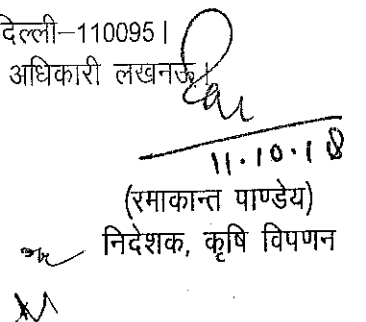 दिल्ली–110095।
अधिकारी लखनऊ।
11.10.18
(रमाकान्त पाण्डेय)
निदेशक, कृषि विपणन